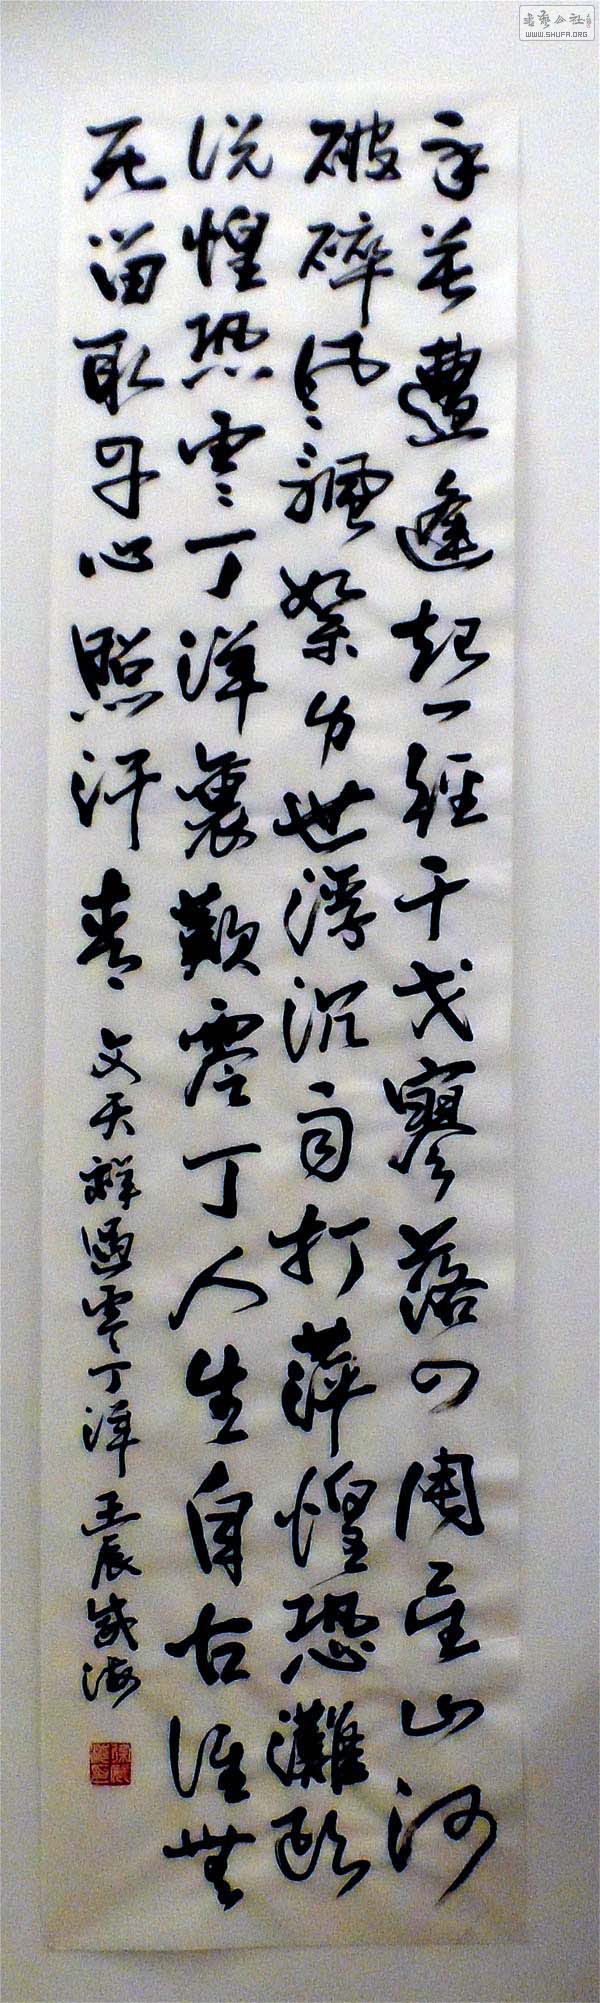 辛苦遭逢起一經干戈寥落四周星山河
破碎風飄絮身世浮沉雨打萍惶恐灘頭
説惶恐零丁洋裏歎零丁人生自古誰無
死留取丹心照汗青 文天祥過零丁洋 壬辰歲海
书艺公社
WWW.SHUFA.ORG